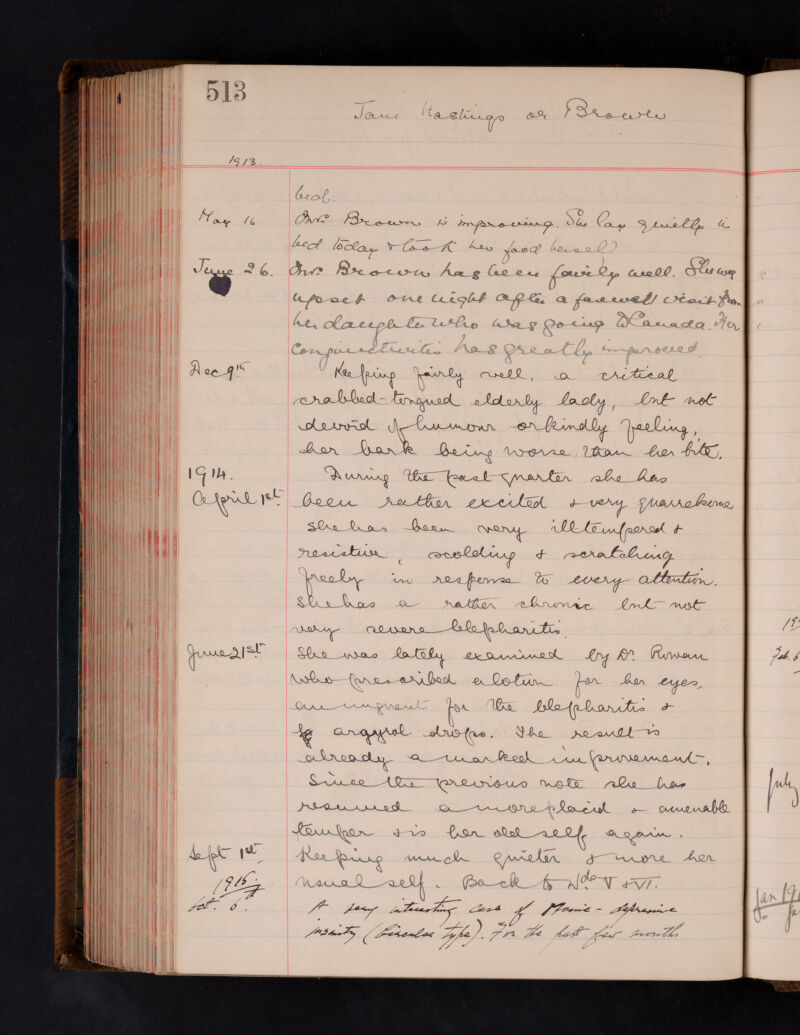 513
Jane Hastings or Brown
1913.
bed.
May 16 Mrs. Brown is improving. She lay quietly in
bed today & took her food herself
June 26. Mrs. Brown has been fairly well. She was
upset one night after a farewell visit from
her daughter who was going to Canada. Her
conjunctivitis has greatly improved.
Dec 9th Keeping fairly well, a critical
crabbed-tongued elderly lady, but not
devoid of humour or kindly feeling,
her bark being worse than her bite.
1914.
During the past quarter she has
April 1st been rather excited & very quarrelsome
She has been very ill tempered &
resistive, scolding & scratching
freely in response to every attention.
She has a rather chronic but not
very severe blepharitis.
June 21st She was lately examined by Dr. Rowan
who prescribed a lotion for her eyes,
an unguent for the blepharitis &
argyrol drops. The result is
already a marked improvement.
Since the previous note she has
resumed a more placid & amenable
temper & is her old self again.
Sept 1st Keeping much quieter & more her
usual self. Back to Wds V & VI.
1915.
Oct. 6th A very interesting case of Manic-depressive
insanity (Circular type). For the past few months
Feb. 6
July
Jan 191